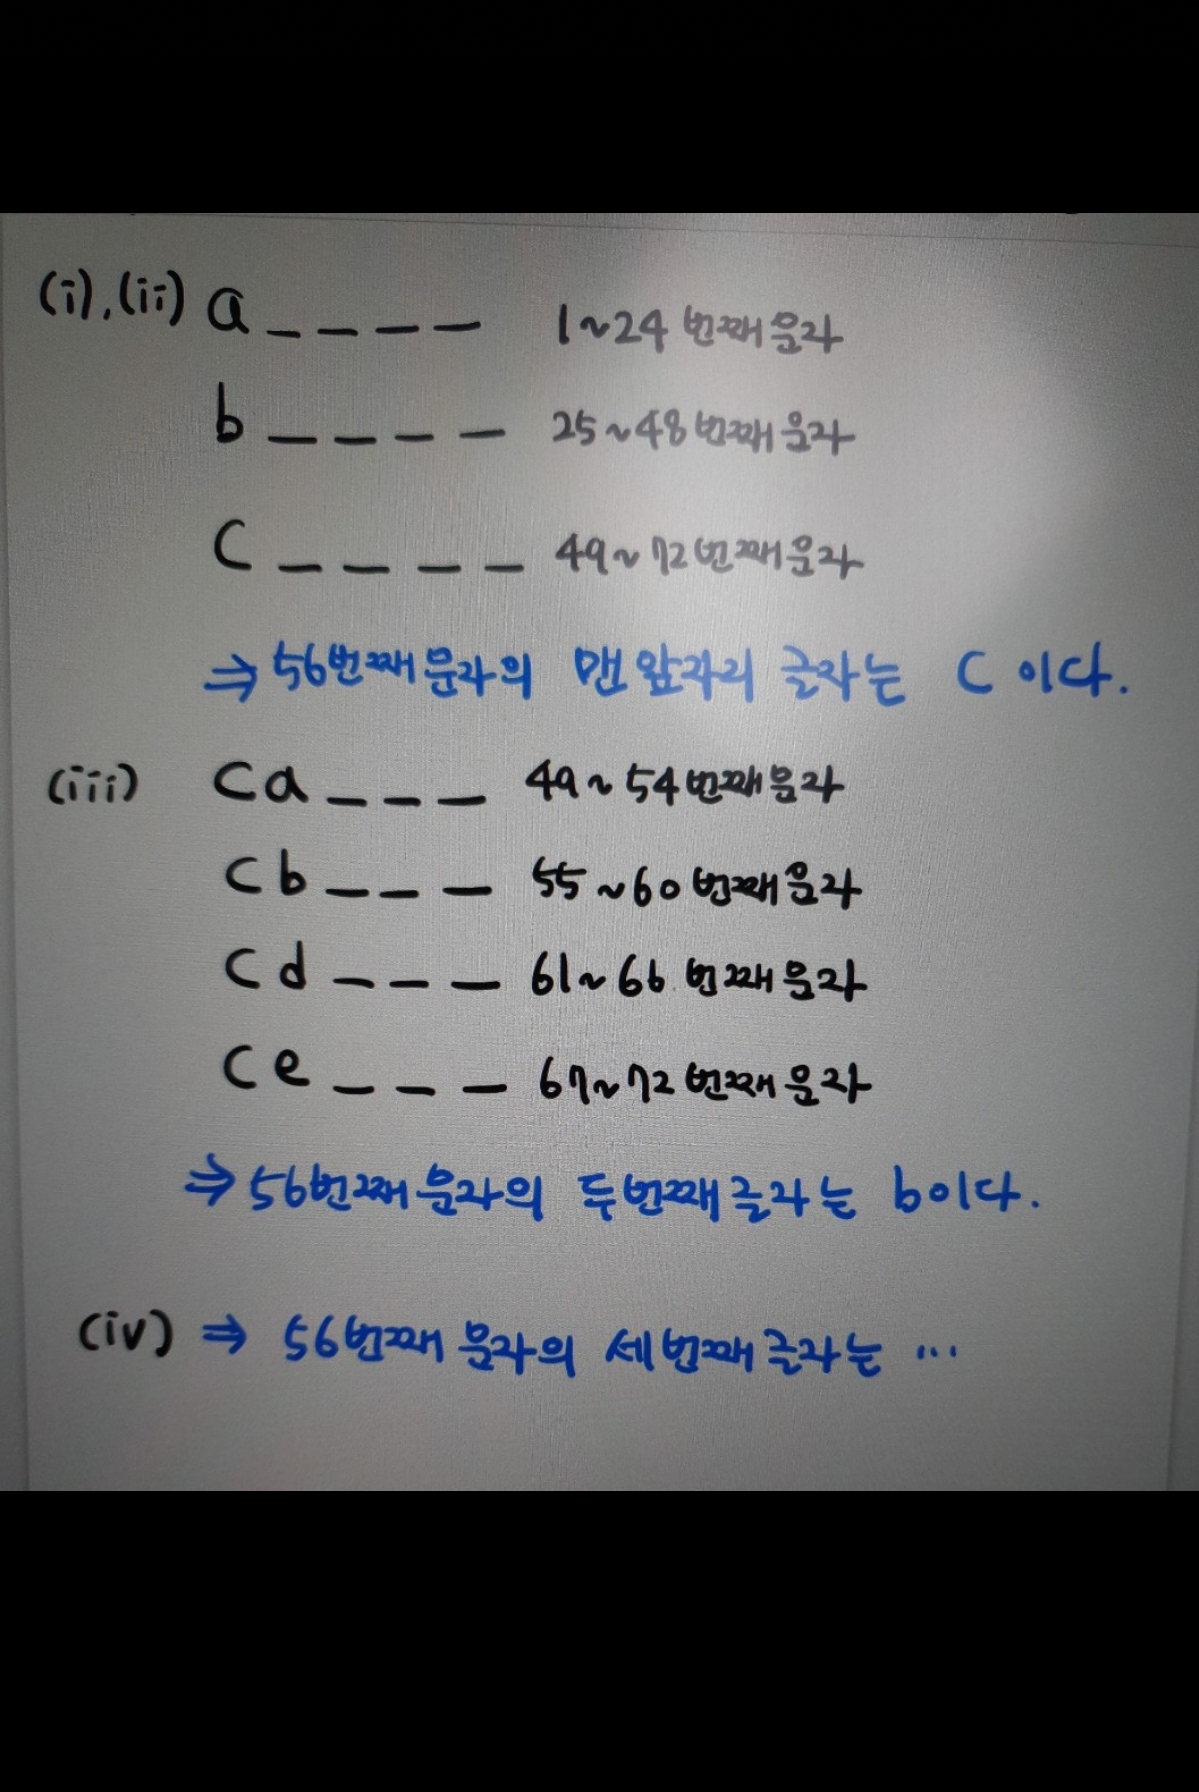 (i), (ii) a _ _ _ _ 1~24 번째 문자
b _ _ _ _ 25~48 번째 문자
C _ _ _ _ 49~72 번째 문자
⇒ 56번째 문자의 맨 앞자리 글자는 C 이다.
(iii) Ca _ _ _ 49~54 번째 문자
Cb _ _ _ 55~60 번째 문자
Cd _ _ _ 61~66 번째 문자
Ce _ _ _ 67~72 번째 문자
⇒ 56번째 문자의 두번째 글자는 b이다.
(iv) ⇒ 56번째 문자의 세번째 글자는 ...